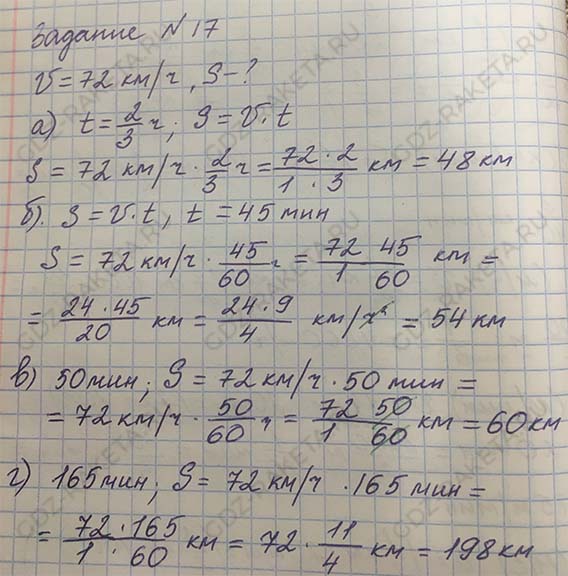 Задание N 17
V = 72 км/ч, S - ?
а) t = 2/3 ч; S = V · t
S = 72 км/ч · 2/3 ч = 72 · 2 / 1 · 3 км = 48 км
б). S = V · t, t = 45 мин
S = 72 км/ч · 45/60 ч = 72 45 / 1 60 км =
= 24 · 45 / 20 км = 24 · 9 / 4 км/ч = 54 км
в) 50 мин; S = 72 км/ч · 50 мин =
= 72 км/ч · 50/60 ч = 72 50 / 1 60 км = 60 км
г) 165 мин; S = 72 км/ч · 165 мин =
= 72 · 165 / 1 · 60 км = 72 · 11/4 км = 198 км
GDZ-RAKETA.RU